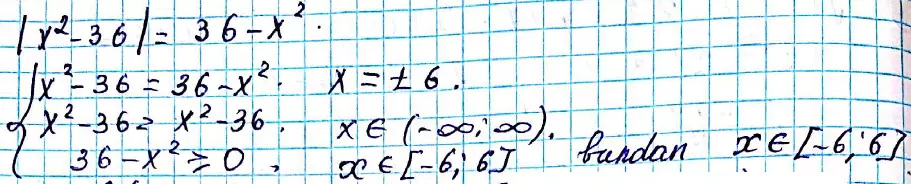 |x²-36| = 36-x².
x²-36 = 36-x². x = ±6.
x²-36 = x²-36. x ∈ (-∞; ∞).
36-x² ≥ 0, x ∈ [-6; 6] bundan x ∈ [-6; 6]